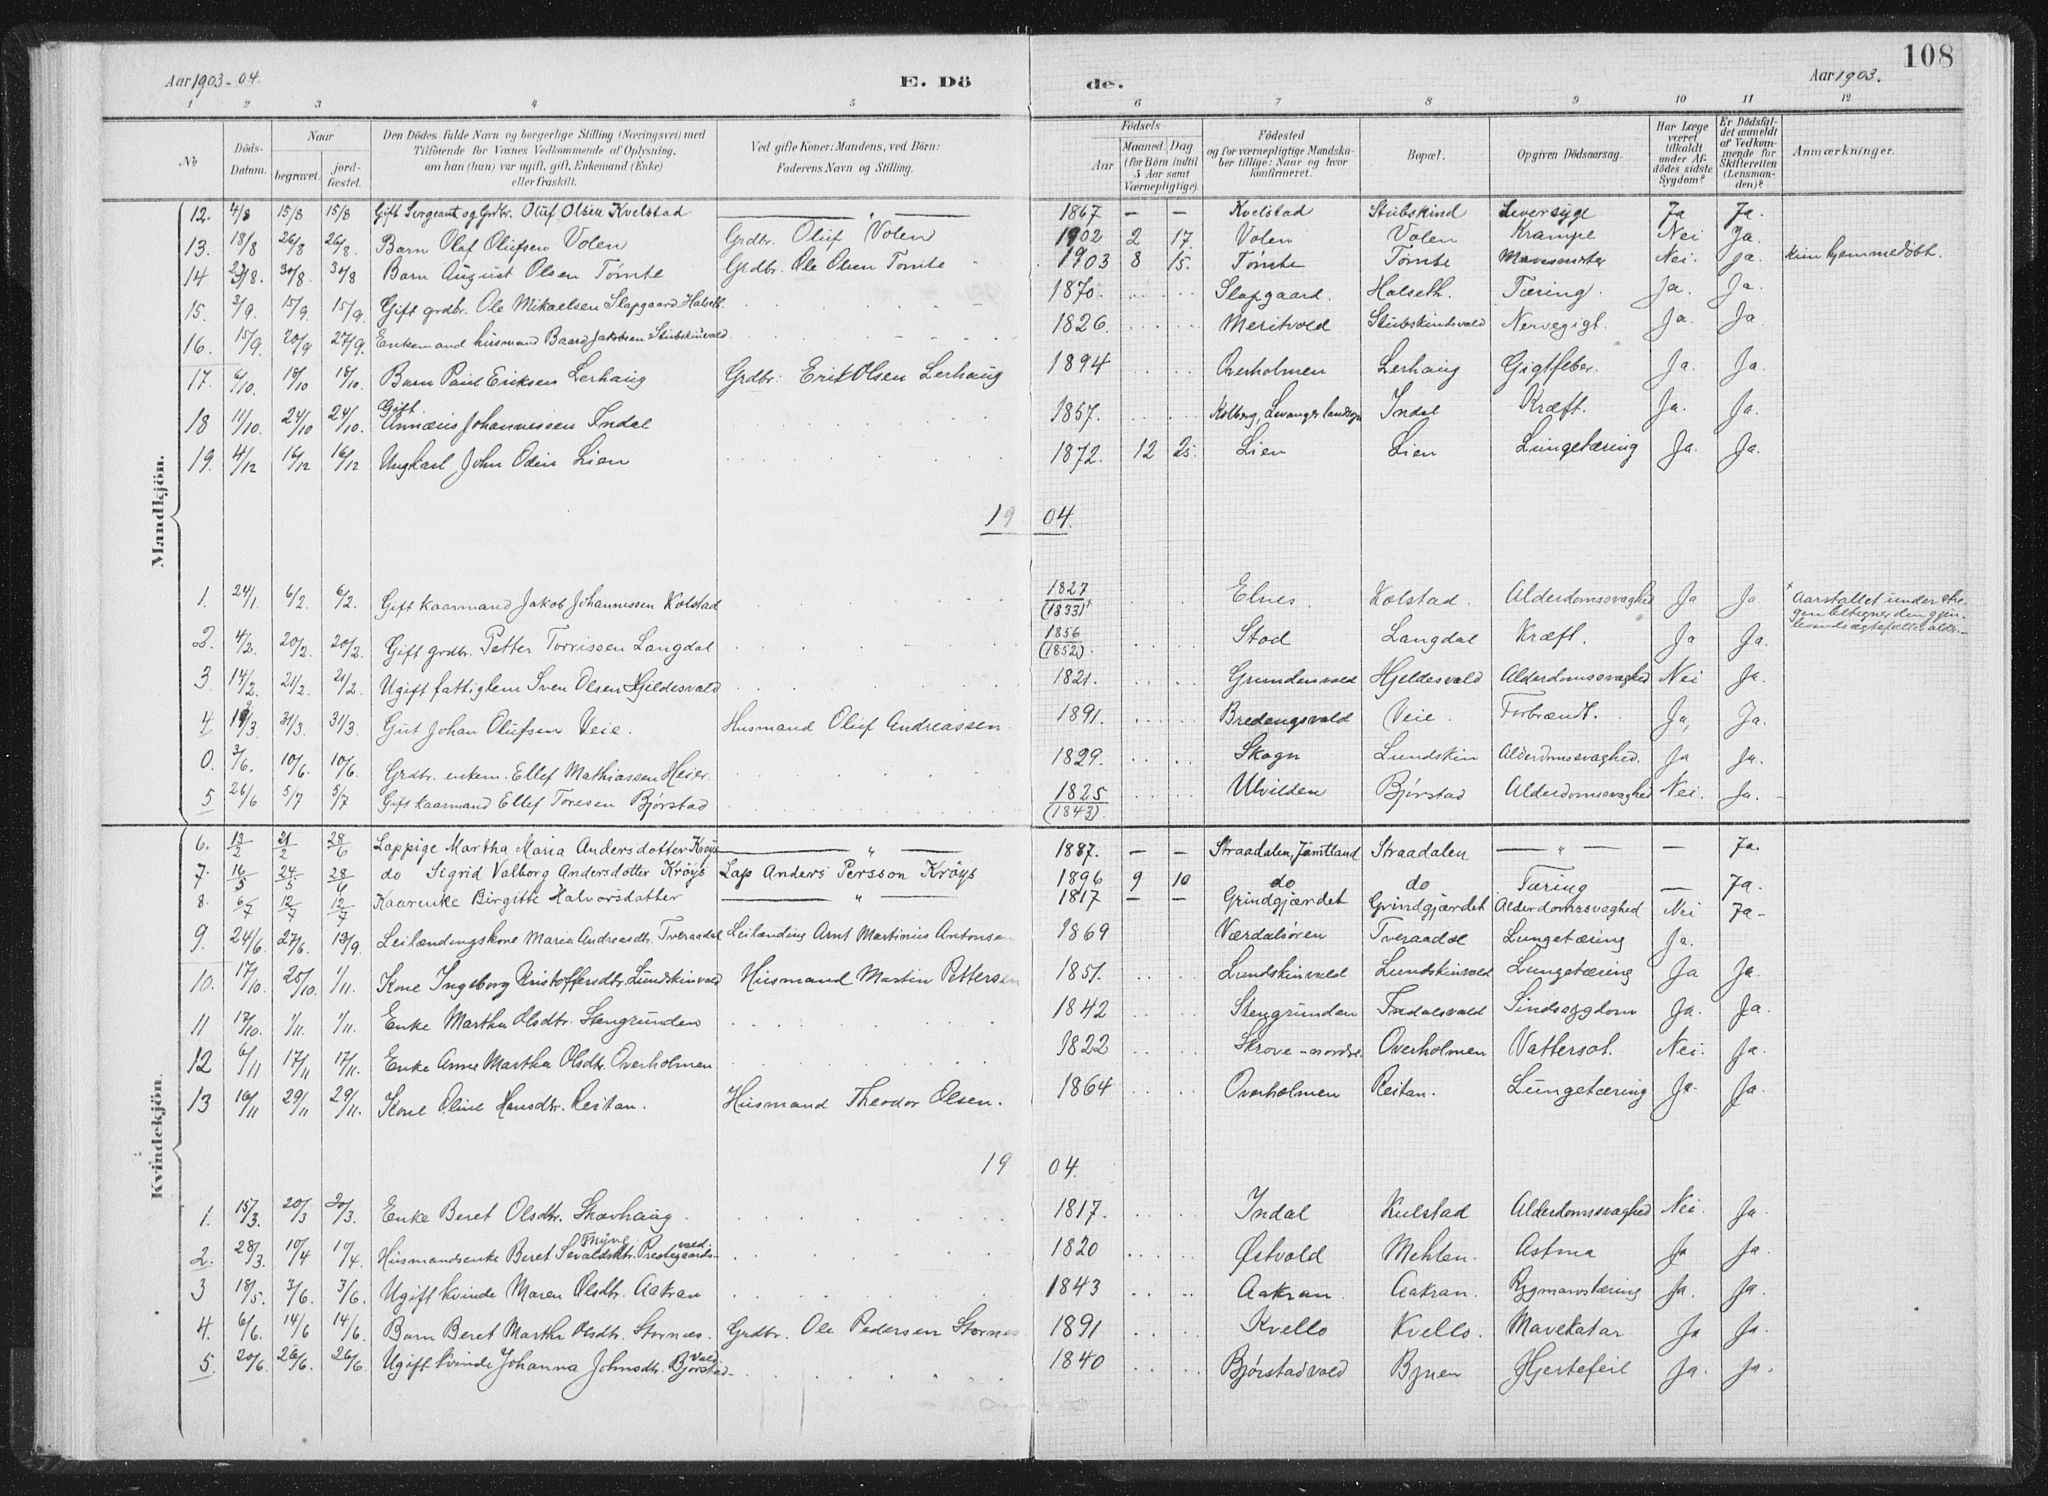 108
Aar 1903-04. E. Dö de. Aar 1903.
1 2 3 4 5 6 7 8 9 10 11 12
No
Döds-Datum.
Naar
begravet.
jord-fæstet.
Den Dödes fulde Navn og borgerlige Stilling (Næringsvei) med
Tilföiende for Voxnes Vedkommende af Oplysning,
om han (hun) var ugift, gift, Enkemand (Enke)
eller fraskilt.
Ved gifte Koner: Mandens, ved Börn:
Faderens Navn og Stilling.
Födsels
Aar
Maaned. Dag
(for Börn indtil
5 Aar samt
Værnepligtige).
Födested
og for værnepligtige Mandska-
ber tillige: Naar og hvor
konfirmeret.
Bopæl.
Opgiven Dödsaarsag.
Har Læge
været
tilkaldt
under Af-
dödes sidste
Sygdom?
Er Dödsfal-
det anmeldt
af Vedkom-
mende for
Skifteretten
(Lensman-
den)?
Anmærkninger.
Mandkjön.
12. 4/8 15/8 15/8 Gift Sergeant og Grdbr. Oluf Olsen Kvelstad — " — 1867 — — Kvelstad Stubskind Leversyge Ja Ja.
13. 18/8 26/8 26/8. Barn Olaf Olufsen Volen Grdbr. Oluf Volen 1902 2 17. Volen Volen Krampe Nei Ja.
14 23/8. 30/8. 30/8 Barn August Olsen Tømte Grdbr. Ole Olsen Tømte 1903 8 15. Tømte Tømte Nei. Ja. kun hjemmedøbt.
15. 3/9. 15/9. 15/9. Gift grdbr. Ole Mikaelsen Slapgaard Halseth. 1870. Slapgaard. Halseth. Tæring. Ja. Ja.
16. 15/9. 20/9 27/9. Enkemand husmand Baard Jakobsen Stubskinvald 1826. Meritvold Stubskindsvald Nervegigt. Ja. Ja
17. 6/10. 18/10 18/10. Barn Paul Eriksen Lerhaug Grdbr: Erik Olsen Lerhaug 1894 Overholmen Lerhaug Gigtfeber. Ja. Ja.
18 11/10. 24/10 24/10. Gift. Annæus Johannessen Indal 1857. Kolberg, Levanger landsogn Indal Kræft. Ja. Ja.
19. 4/12 16/12 16/12 Ungkarl John Odin Lien 1872. 12 25. Lien Lien Lungetæring Ja. Ja.
19 04.
1. 24/1. 6/2. 6/2. Gift kaarmand Jakob Johannessen Kolstad 1827 (1833)x Elnes. Kolstad. Alderdomssvaghed Ja Ja. x Aarstallet under stre-
gen betegner den gjen-
levende ægtefælles alder.
2. 4/2. 20/2. 20/2. Gift grdbr. Petter Torrissen Langdal 1856 (1852). Stod Langdal Kræft. Ja Ja.
3. 14/2. 21/2. 21/2. Ugift fattiglem Sven Olsen Hjeldesvald 1821. Grundenvald Hjeldesvald Alderdomssvaghed Nei Ja.
4 19/3. 31/3. 31/3. Gut Johan Olufsen Veie. Husmand Oluf Andreassen 1891. Bredengsvald Veie. Forbrændt. Ja, Ja.
0. 3/6. 10/6. 10/6. Grdbr. enkem. Ellef Mathiassen Heier. 1829. Skogn Lundskin Alderdomssvaghed. Ja Ja.
5 26/6 5/7 5/7 Gift kaarmand Ellef Toresen Bjørstad 1825 (1843). Ulvilden Bjørstad Alderdomssvaghed Nei. Ja.
Kvindekjön.
6. 13/2 21/2 28/6 Lappige Martha Maria Andersdotter Krøys — " — 1887. — — Straadalen, Jämtland Straadalen — " — — Ja.
7. 16/5 24/5 28/6 do Sigrid Valborg Andersdotter Krøys Lap Anders Persson Krøys 1896 9 10 do do Tæring — Ja.
8. 6/7 12/7 12/7 Kaarenke Birgitte Halvorsdatter — " — 1817 — — Grindgjærdet Grindgjærdet Alderdomssvaghed Nei Ja
9. 24/6. 27/6. 13/9. Leilændingskone Maria Andreasdtr. Tveraadal Leilænding Arnt Martinius Antonsen 1869 Værdalsøren Tveraadal Lungetæring Ja.
10. 17/10. 25/10. 1/11. Kone Ingeborg Kristoffersdtr. Lundskinvald Husmand Martin Pettersen 1851. Lundskinvald Lundskinvald Lungetæring Ja Ja.
11 17/10. 1/11. 1/11. Enke Martha Olsdtr. Stengrunden 1842 Stengrunden Indalsvald Sindssygdom Ja. Ja.
12 6/11 17/11 17/11. Enke Anne Martha Olsdtr. Overholmen 1822 Skrove-nordre. Overholmen Vattersot. Nei. Ja.
13 16/11 29/11 29/11. Kone Oline Hansdtr. Reitan. Husmand Theodor Olsen. 1864 Overholmen Reitan. Lungetæring Ja. Ja.
19 04.
1. 15/3. 20/3 20/3. Enke Beret Olsdtr. Skavhaug. 1817. Indal Kulstad Alderdomssvaghed Nei. Ja.
2. 28/3. 10/4 10/4. Husmandsenke Beret Sevaldsdtr. Prestegaards-vald. 1820 Østvold Mehlen. Astma Ja Ja.
3 18/5. 3/6. 3/6. Ugift kvinde Maren Olsdtr. Aakran 1843 Aakran. Aakran. Rygmarvstæring Ja. Ja.
4. 6/6. 14/6 14/6. Barn Beret Martha Olsdtr. Stornes. Grdbr. Ole Pedersen Stornes 1891 Kvello Kvello. Mavekatar Ja Ja.
5. 20/6. 26/6. 26/6. Ugift kvinde Johanna Johnsdtr. Bjørstad-vald 1840 Bjørstadvald Bynen Hjertefeil Ja. Ja.